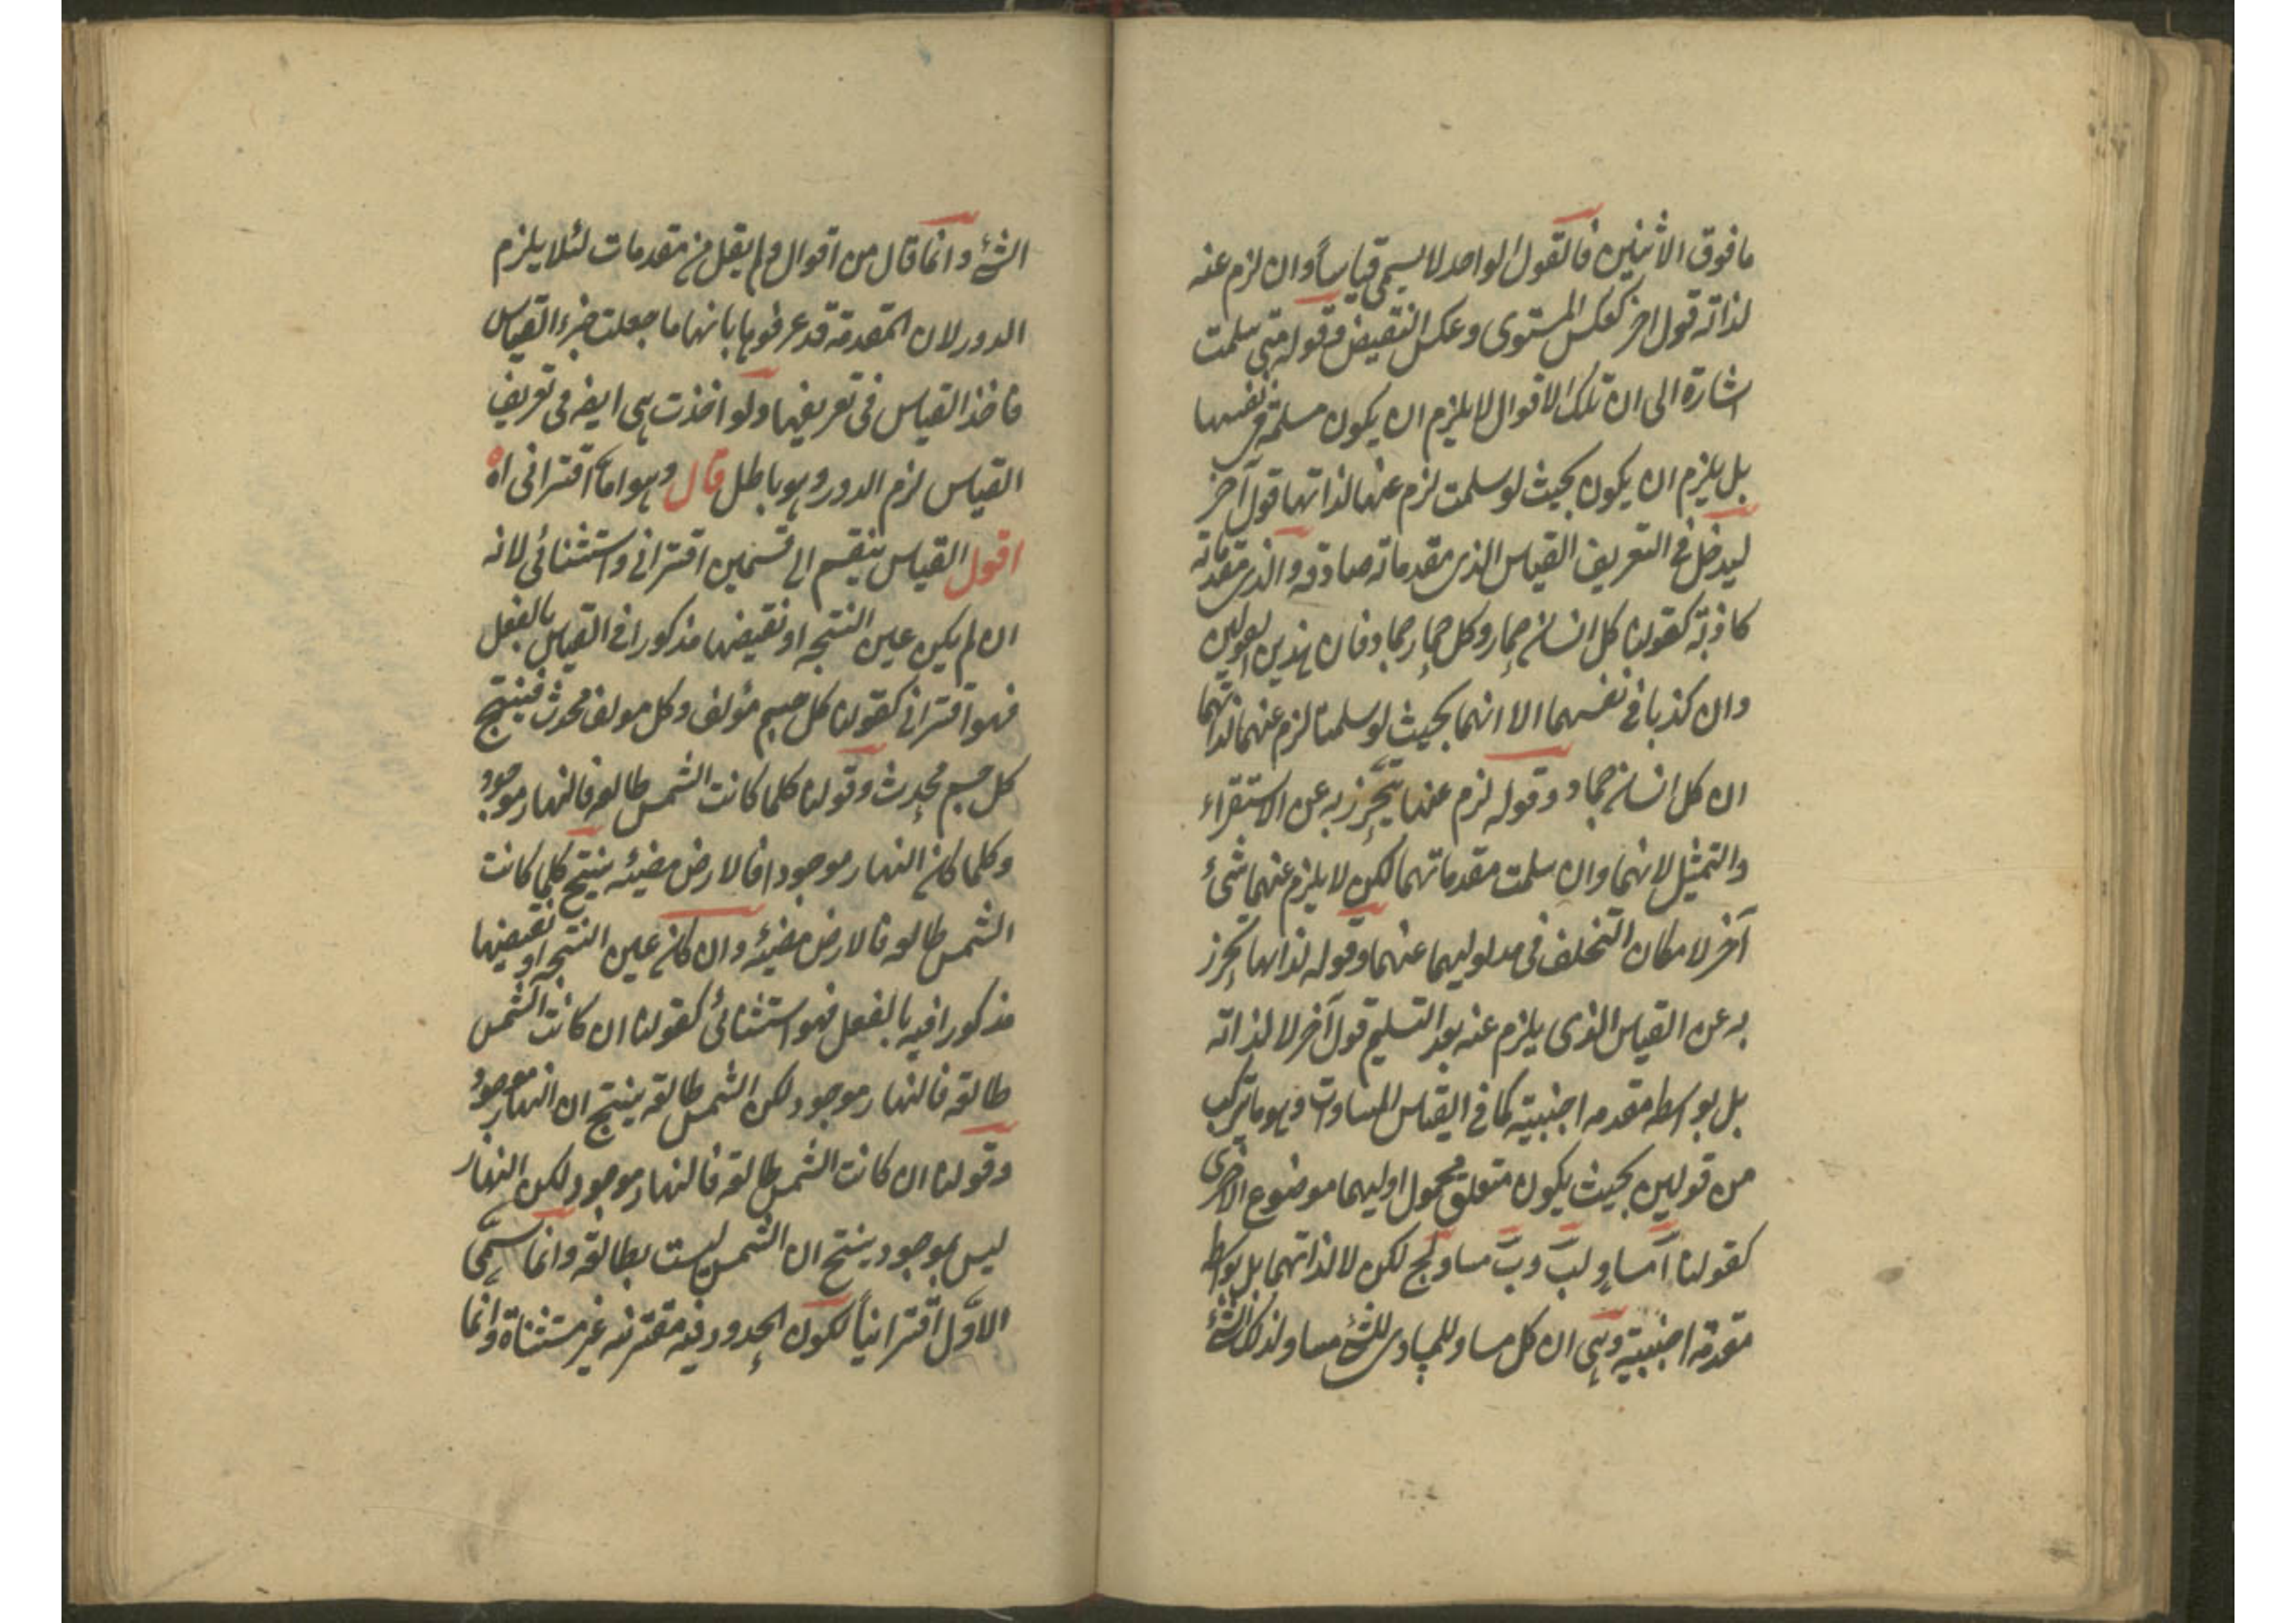 ما فوق الاثنين فالقول الواحد لا يسمى قياساً وان لزم عنه
لذاته قول اخر كعكس المستوى وعكس النقيض وقوله متى سلمت
اشارة الى ان تلك الاقوال لا يلزم ان يكون مسلمة فى نفسها
بل يلزم ان يكون بحيث لو سلمت لزم عنها لذاتها قول آخر
ليدخل فى التعريف القياس الذى مقدماته صادقه والذى مقدماته
كاذبة كقولنا كل انسان حمار وكل حمار جماد فان هذين القولين
وان كذبا فى نفسهما الا انهما بحيث لو سلمتا لزم عنهما لذاتهما
ان كل انسان جماد وقوله لزم عنها يحترز به عن الاستقراء
والتمثيل لانهما وان سلمت مقدماتهما لكن لا يلزم عنهما شئ
آخر لامكان التخلف فى مدلوليهما عنهما وقوله لذاتها يحترز
به عن القياس الذى يلزم عنه بعد التسليم قول آخر لا لذاته
بل بواسطه مقدمه اجنبيته كما فى القياس المساوات وهو ما يتركب
من قولين بحيث يكون متعلق محمول اوليهما موضوع الاخرى
كقولنا آ مساوٍ لب وب مساو لج لكن لا لذاتهما بل بواسطة
مقدمة اجنبيته وهى ان كل مساو للمساوى للشئ مساو لذلك الشئ
الشئ وانما قال من اقوال ولم يقل من مقدمات لئلا يلزم
الدور لان المقدمة قد عرفوها بانها ما جعلت جزء القياس
فاخذ القياس فى تعريفها ولو اخذت هى ايضه فى تعريف
القياس لزم الدور وهو باطل قال وهو اما اقترانى اه
اقول القياس ينقسم الى قسمين اقترانى واستثنائى لانه
ان لم يكن عين النتيجه او نقيضها مذكورا فى القياس بالفعل
فهو اقترانى كقولنا كل جسم مؤلف وكل مولف محدث فينتج
كل جسم محدث وقولنا كلما كانت الشمس طالعه فالنهار موجود
وكلما كان النهار موجودا فالارض مضيئه ينتج كلما كانت
الشمس طالعه فالارض مضيئه وان كان عين النتيجه او نقيضها
مذكورا فيه بالفعل فهو استثنائى كقولنا ان كانت الشمس
طالعة فالنهار موجود لكن الشمس طالعة ينتج ان النهار موجود
وقولنا ان كانت الشمس طالعة فالنهار موجود لكن النهار
ليس بموجود ينتج ان الشمس ليست بطالعة وانما سمى
الاوّل اقترانياً لكون الحدود فيه مقترنه غير مستثناة وانما